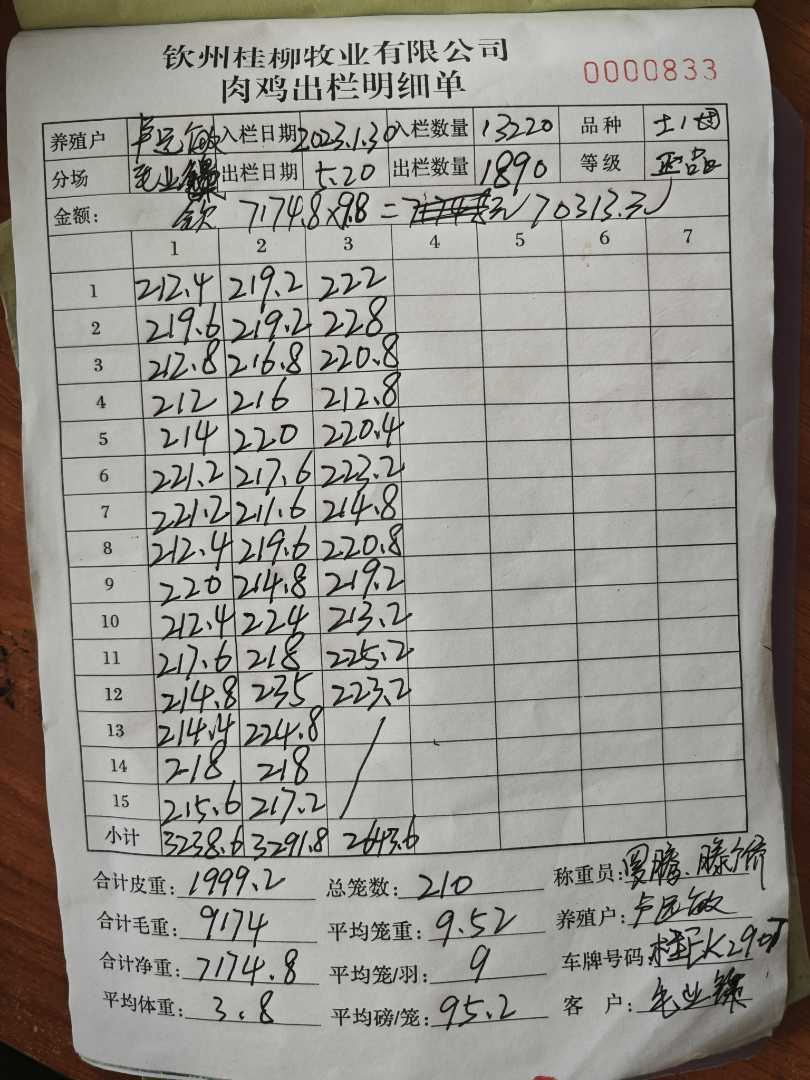 钦州桂柳牧业有限公司
肉鸡出栏明细单 0000833
养殖户 卢远敏 入栏日期 2023.1.30 入栏数量 13220 品种
分场 出栏日期 5.20 出栏数量 1890 等级 正品
金额: 7174.8×9.8= 70313.
1 2 3 4 5 6 7
1 212.4 219.2 222
2 219.6 219.2 228
3 212.8 216.8 220.8
4 212 216 212.8
5 214 220 220.4
6 221.2 217.6 223.2
7 221.2 211.6 214.8
8 212.4 219.6 220.8
9 220 214.8 219.2
10 212.4 224 213.2
11 217.6 218 225.2
12 214.8 235 223.2
13 214.4 224.8
14 218 218
15 215.6 217.2
小计 3238.6 3291.8 2643.6
合计皮重: 1999.2 总笼数: 210 称重员:
合计毛重: 9174 平均笼重: 9.52 养殖户: 卢远敏
合计净重: 7174.8 平均笼/羽: 9 车牌号码:
平均体重: 3.8 平均磅/笼: 95.2 客户: